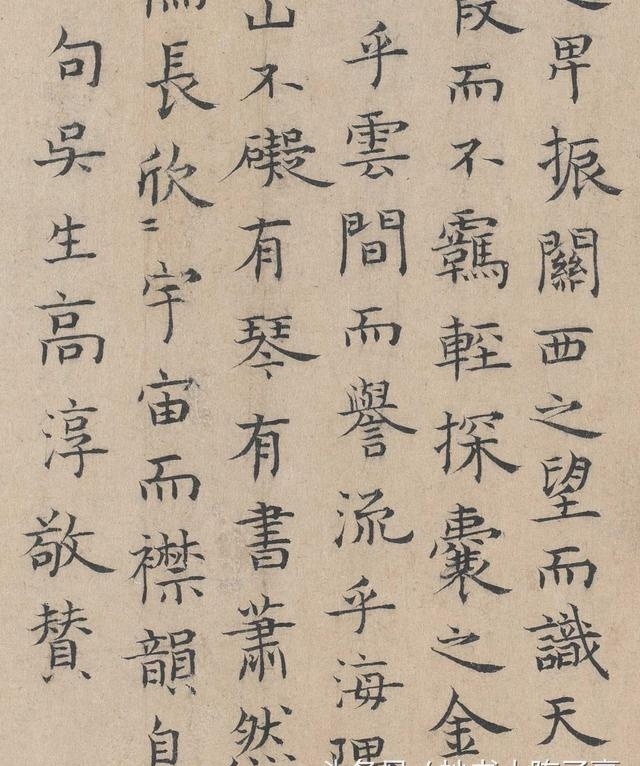 卑振關西之望而識天
而不羈輕探囊之金
乎雲間而譽流乎海隅
山不礙有琴有書蕭然
長欣〻宇宙而襟韻自
句吳生高淳敬贊